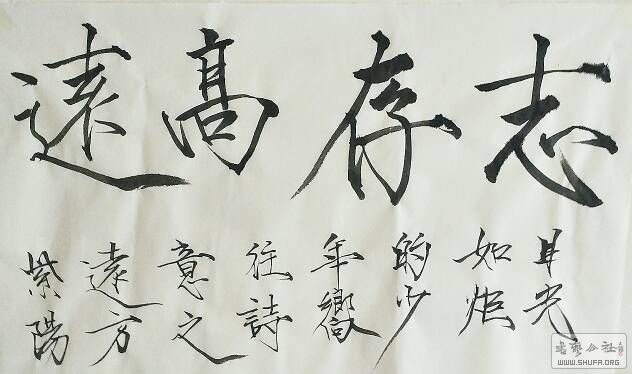 志存高遠
目光
如炬
的少
年嚮
往詩
意之
遠方
紫陽
書藝公社
WWW.SHUFA.ORG